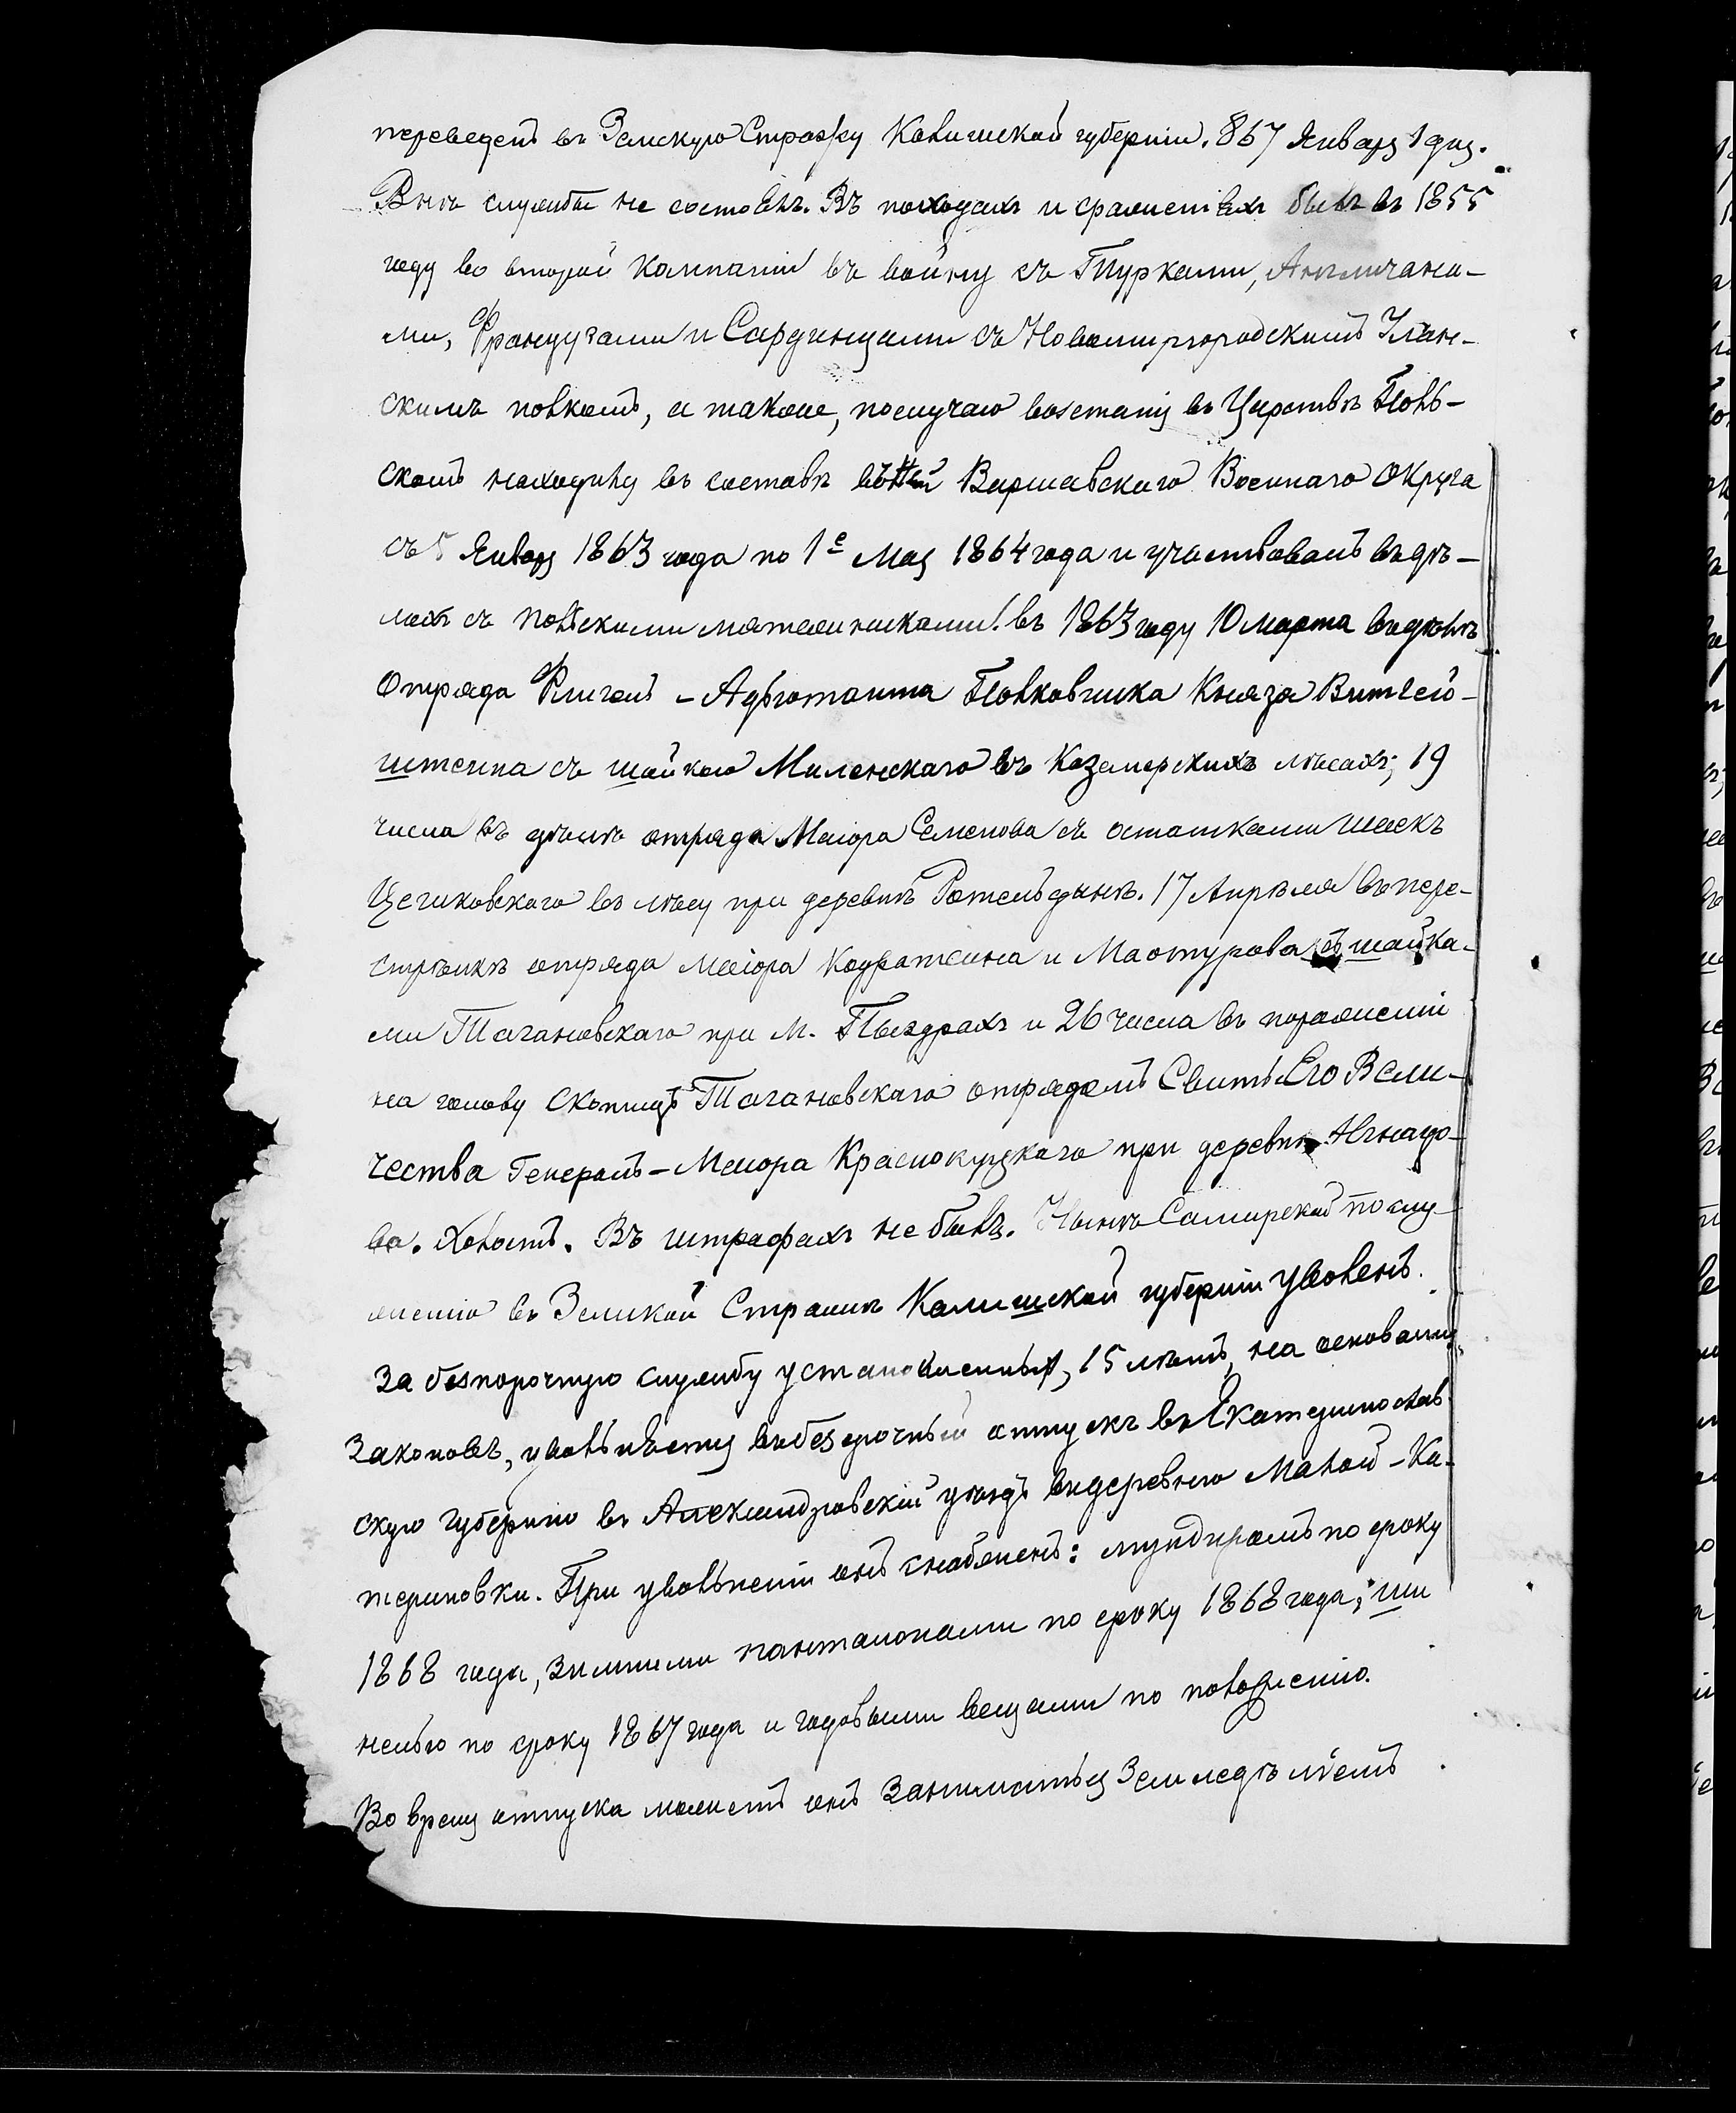 переведенъ въ Земскую Стражу Калишской губерніи. 867 Января 1 дня.
Внѣ службы не состоялъ. Въ походахъ и сраженіяхъ былъ въ 1855
году во второй кампаніи въ войну съ Турками, Англичана-
ми, Французами и Сардинцами съ Новомиргородскимъ Улан-
скимъ полкомъ, а также, послучаю востанія въ Царствѣ Поль-
скомъ находился въ составѣ Варшавскаго Военнаго Округа
съ 5 Января 1863 года по 1е Мая 1864 года и участвовалъ въ дѣ-
лахъ съ польскими мятежниками: въ 1863 году 10 марта въ дѣлѣ
Отряда Флигель-Адъютанта Полковника Князя Витген-
штеина съ шайкою Миленскаго въ Каземерскихъ лѣсахъ; 19
числа въ дѣлѣ отряда Маіора Семенова съ остатками шаекъ
Цешковскаго въ лѣсу при деревнѣ. 17 Апрѣля въ пере-
стрѣлкѣ отряда Маіора и съ шайка-
ми Тачановскаго при м. Пыздрахъ и 26 числа въ пораженіи
на голову скопищъ Тачановскаго отрядомъ Свиты Его Вели-
чества Генералъ-Маіора Краснокуцкаго при деревнѣ Игнацо-
во. Холостъ. Въ штрафахъ не былъ. Нынѣ по слу-
женію въ Земской Стражѣ Калишской губерніи уволенъ.
За безпорочную службу установленныхъ 15 лѣтъ, на основаніи
Законовъ, увольняется въ безсрочный отпускъ въ Екатеринослав-
скую губернію въ Александровскій уѣздъ въ деревню Малой-Ка-
териновки. При увольненіи онъ снабженъ: мундиромъ по сроку
1868 года, зимними панталонами по сроку 1868 года, ши
нелью по сроку 1867 года и годовыми вещами по положенію.
Во время отпуска можетъ онъ заниматься земледѣліемъ